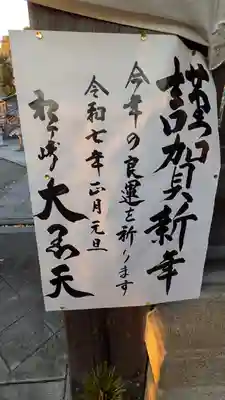 謹賀新年
今年の良運を祈ります
令和七年正月元旦
松ヶ崎大黒天